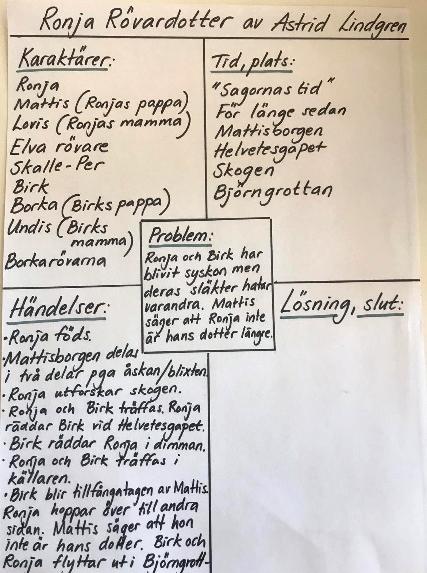 Ronja Rövardotter av Astrid Lindgren
Karaktärer:
Ronja
Mattis (Ronjas pappa)
Lovis (Ronjas mamma)
Elva rövare
Skalle-Per
Birk
Borka (Birks pappa)
Undis (Birks
mamma)
Borkarövarna
Tid, plats:
"Sagornas tid"
För länge sedan
Mattisborgen
Helvetesgapet
Skogen
Björngrottan
Problem:
Ronja och Birk har
blivit syskon men
deras släkter hatar
varandra. Mattis
säger att Ronja inte
är hans dotter längre.
Händelser:
• Ronja föds.
• Mattisborgen delas
i två delar pga åskan/blixten.
• Ronja utforskar skogen.
• Ronja och Birk träffas. Ronja
räddar Birk vid Helvetesgapet.
• Birk räddar Ronja i dimman.
• Ronja och Birk träffas i
källaren.
• Birk blir tillfångatagen av Mattis.
Ronja hoppar över till andra
sidan. Mattis säger att hon
inte är hans dotter. Birk och
Ronja flyttar ut i Björngrott-
Lösning, slut: